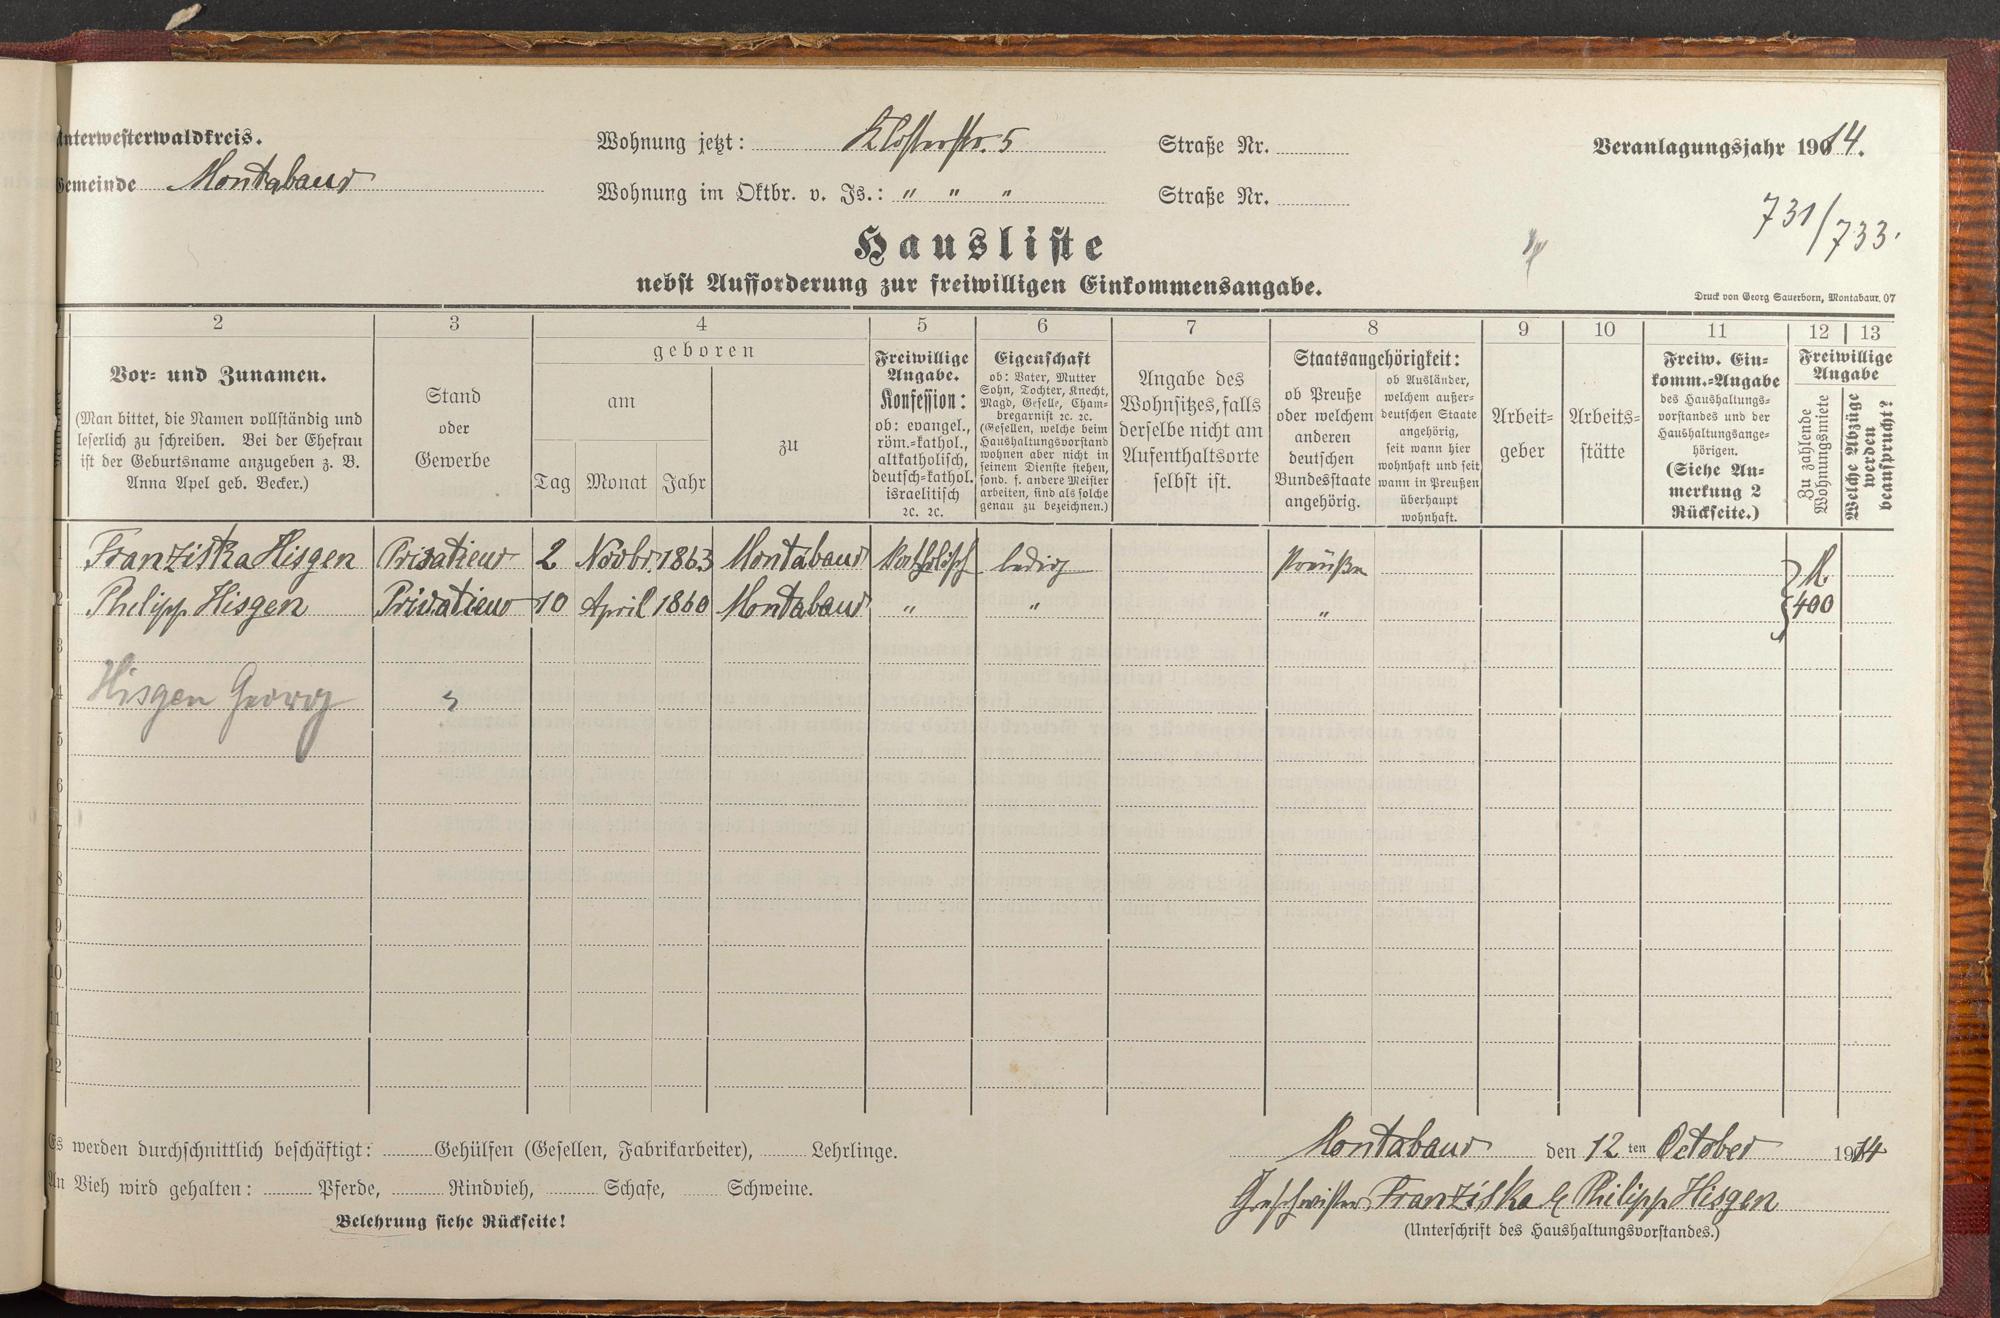 Unterwesterwaldkreis.
Gemeinde Montabaur
Wohnung jetzt: Klosterstr. 5 Straße Nr.
Wohnung im Oktbr. v. Js.: " " " Straße Nr.
Veranlagungsjahr 1914.
731/733.
Hausliste
nebst Aufforderung zur freiwilligen Einkommensangabe.
Druck von Georg Sauerborn, Montabaur. 07
2 3 4 5 6 7 8 9 10 11 12 13
Vor- und Zunamen.
(Man bittet, die Namen vollständig und
leserlich zu schreiben. Bei der Ehefrau
ist der Geburtsname anzugeben z. B.
Anna Apel geb. Becker.)
Stand
oder
Gewerbe
geboren
am
Tag Monat Jahr
zu
Freiwillige
Angabe.
Konfession:
ob: evangel.,
röm.-kathol.,
altkatholisch,
deutsch-kathol.
israelitisch
2c. 2c.
Eigenschaft
ob: Vater, Mutter
Sohn, Tochter, Knecht,
Magd, Geselle, Cham-
bregarnist 2c. 2c.
(Gesellen, welche beim
Haushaltungsvorstand
wohnen aber nicht in
seinem Dienste stehen,
sond. f. andere Meister
arbeiten, sind als solche
genau zu bezeichnen.)
Angabe des
Wohnsitzes, falls
derselbe nicht am
Aufenthaltsorte
selbst ist.
Staatsangehörigkeit:
ob Preuße
oder welchem
anderen
deutschen
Bundesstaate
angehörig.
ob Ausländer,
welchem außer-
deutschen Staate
angehörig,
seit wann hier
wohnhaft und seit
wann in Preußen
überhaupt
wohnhaft.
Arbeit-
geber
Arbeits-
stätte
Freiw. Ein-
komm.-Angabe
des Haushaltungs-
vorstandes und der
Haushaltungsange-
hörigen.
(Siehe An-
merkung 2
Rückseite.)
Freiwillige
Angabe
Zu zahlende
Wohnungsmiete
Welche Abzüge
werden
beansprucht?
1 Franziska Hisgen Privatieur 2 Novbr. 1863 Montabaur Katholisch ledig Preußen M.
2 Philipp Hisgen Privatieur 10 April 1860 Montabaur " " " 400
3
4 Hisgen Georg
5
6
7
8
9
10
11
12
Es werden durchschnittlich beschäftigt: Gehülfen (Gesellen, Fabrikarbeiter), Lehrlinge.
An Vieh wird gehalten: Pferde, Rindvieh, Schafe, Schweine.
Belehrung siehe Rückseite!
Montabaur den 12 ten October 1914
Geschwister Franziska & Philipp Hisgen
(Unterschrift des Haushaltungsvorstandes.)